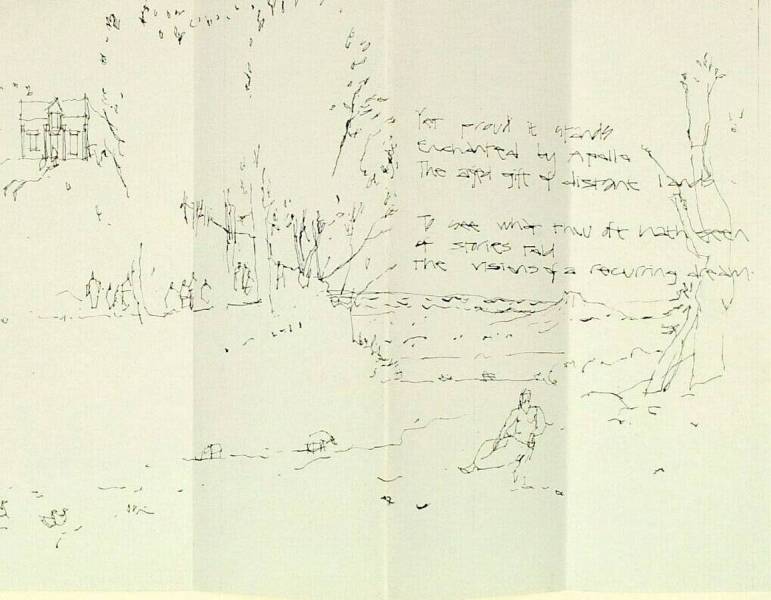 Yet proud it stands
Enchanted by Apollo
The aged gift of distant lands
To see what thou oft hath seen
of stories told
The visions of a recurring dream.